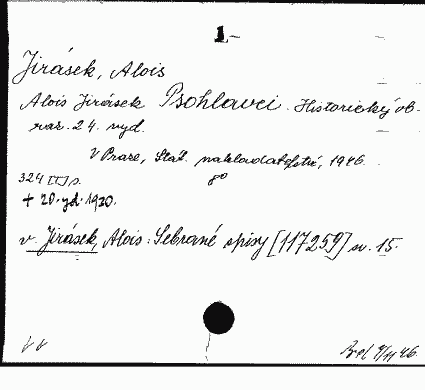 1-
Jirásek, Alois
Alois Jirásek Psohlavci. Historický ob-
raz. 24. vyd.
V Praze, Stát. nakladatelství, 1946.
8°
324 [I] s.
+ 20. yd. 1930.
v. Jirásek, Alois: Sebrané spisy [117259] sv. 15.
46.